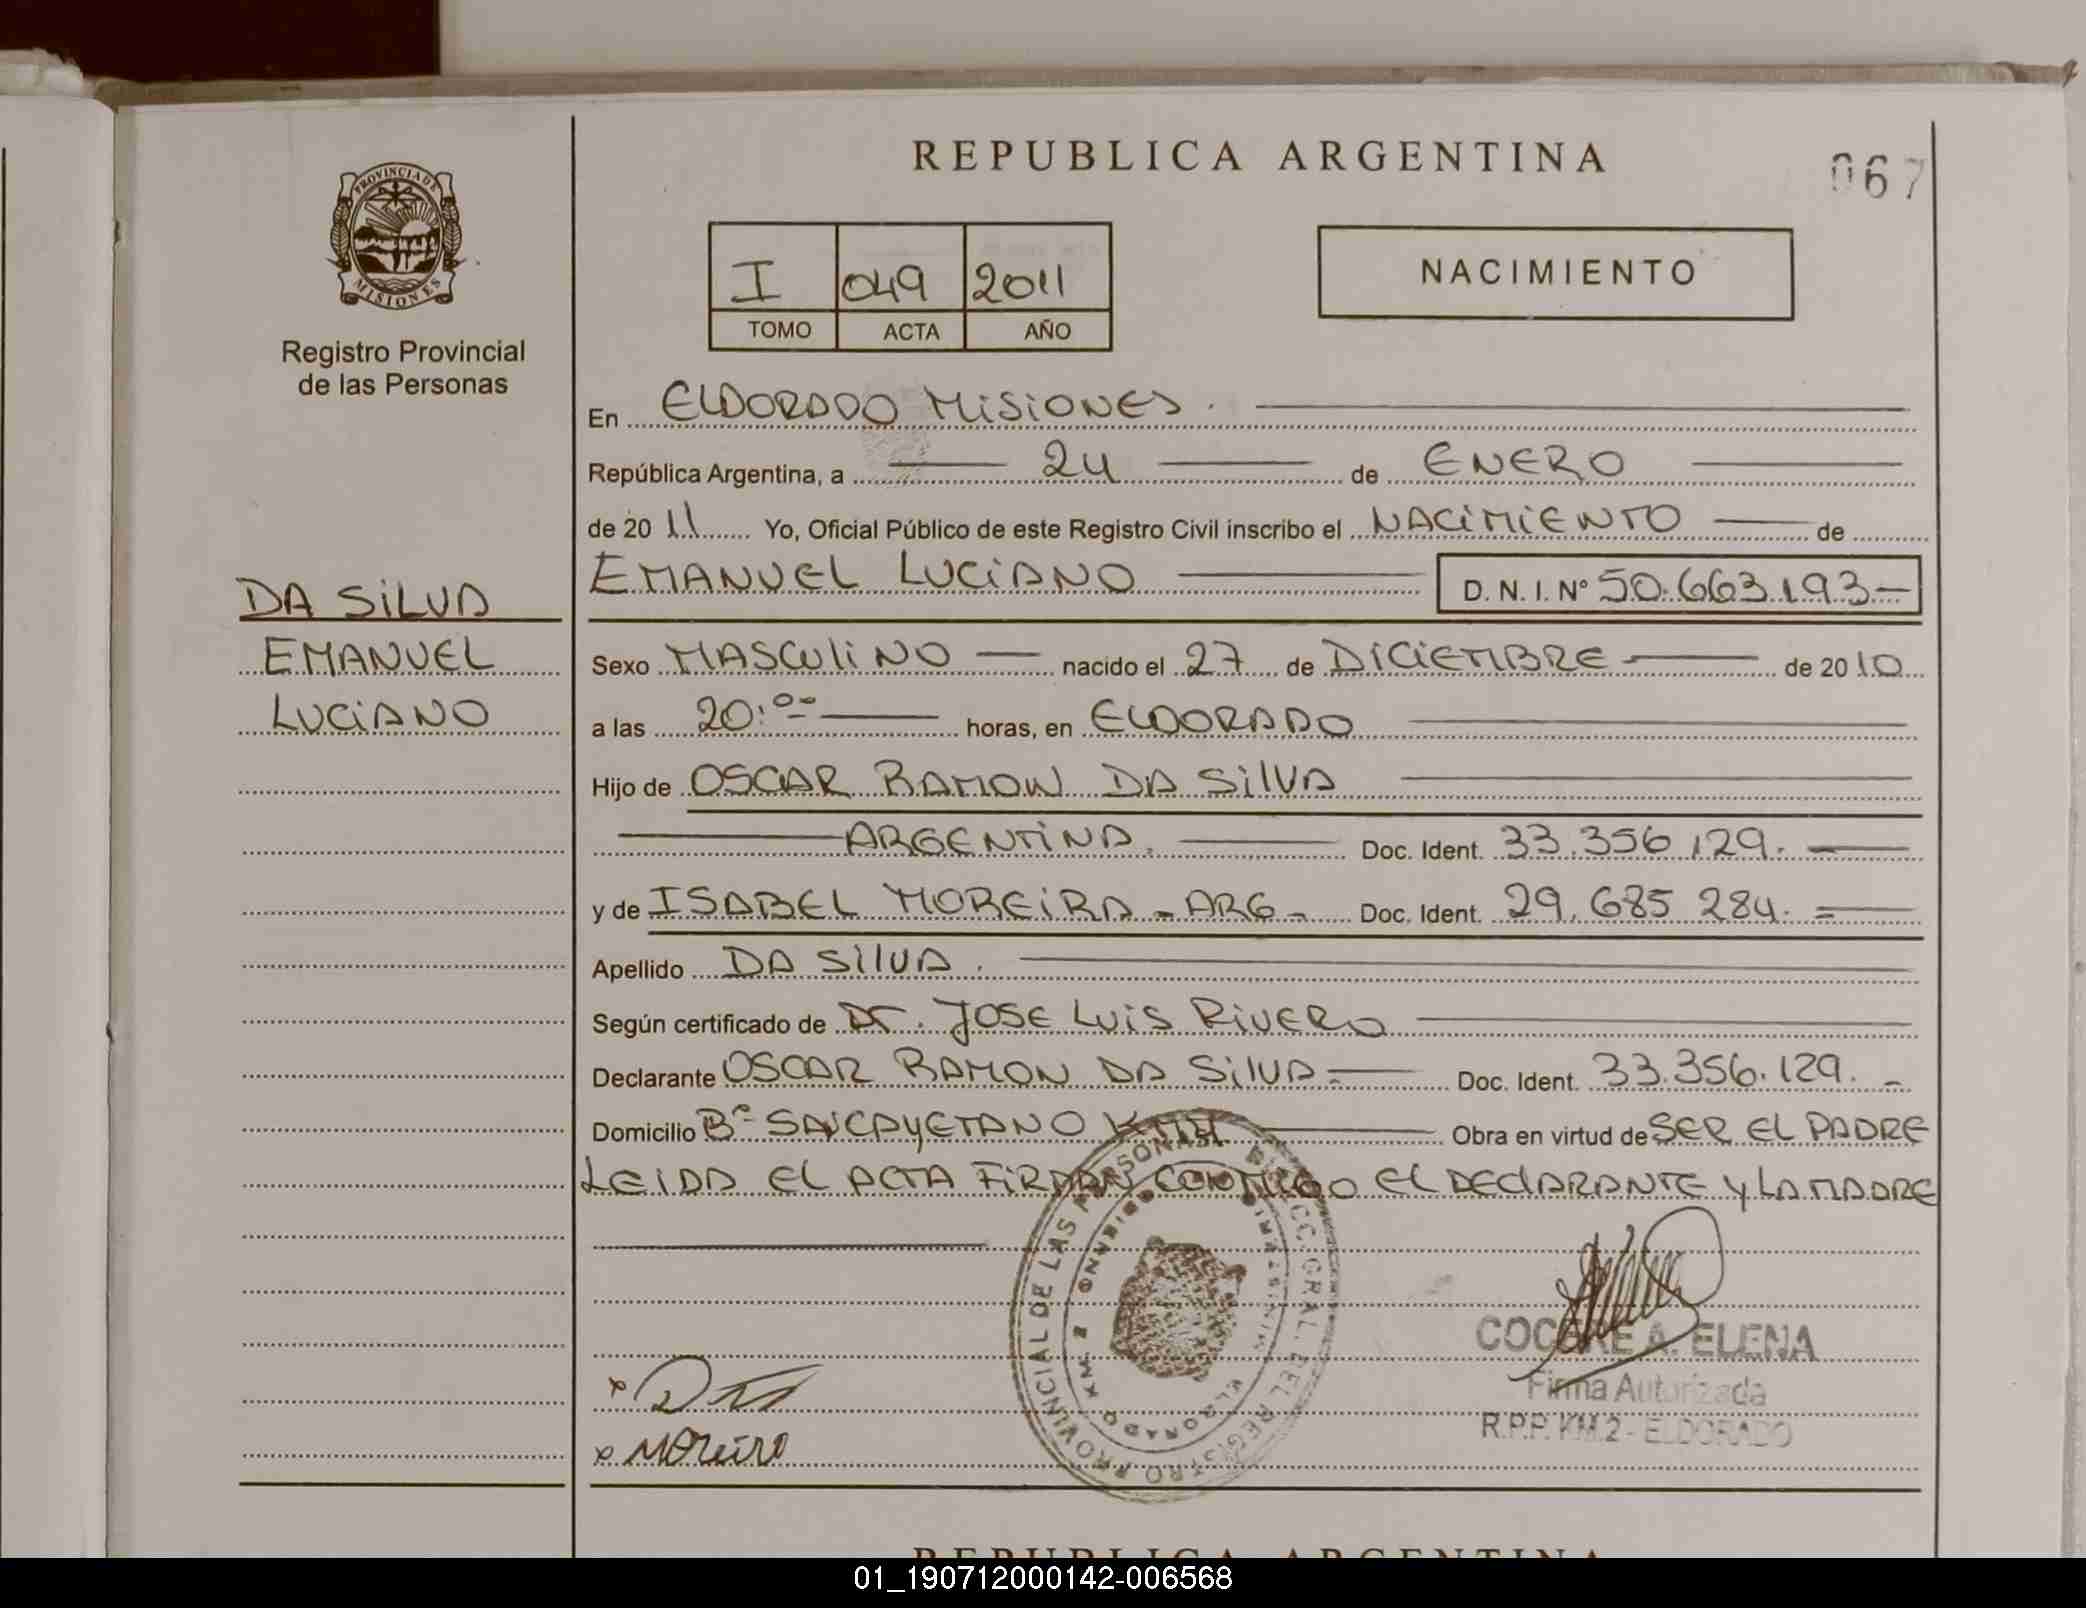 REPUBLICA ARGENTINA
067
PROVINCIA DE
MISIONES
Registro Provincial
de las Personas
I 049 2011
TOMO ACTA AÑO
NACIMIENTO
En ELDORADO MISIONES.
República Argentina, a 24 de ENERO
de 2011 Yo, Oficial Público de este Registro Civil inscribo el NACIMIENTO de
EMANUEL LUCIANO D.N.I. N° 50.663.193-
DA SILVA
EMANUEL
LUCIANO
Sexo MASCULINO nacido el 27 de DICIEMBRE de 2010
a las 20:00 horas, en ELDORADO
Hijo de OSCAR RAMON DA SILVA
ARGENTINA. Doc. Ident. 33.356.129.
y de ISABEL MOREIRA - ARG- Doc. Ident. 29.685 284.
Apellido DA SILVA.
Según certificado de Dr. JOSE LUIS RIVERO
Declarante OSCAR RAMON DA SILVA Doc. Ident. 33.356.129. -
Domicilio B° SAN CAYETANO Obra en virtud de SER EL PADRE
LEIDA EL ACTA FIRMAN CONMIGO EL DECLARANTE Y LA MADRE
REGISTRO PROVINCIAL DE LAS PERSONAS
KM. 2
ELDORADO
ELENA
Firma Autorizada
R.P.P. KM.2 - ELDORADO
x Moreira
REPUBLICA ARGENTINA
01_190712000142-006568